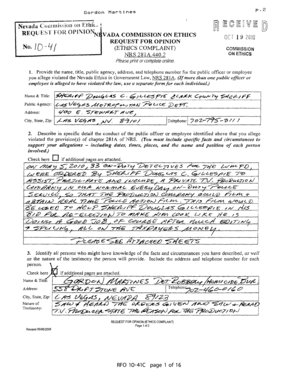 Gordon Martines
P.2
Nevada Commission on Ethics
REQUEST FOR OPINION
No. 10-41
NEVADA COMMISSION ON ETHICS
REQUEST FOR OPINION
(ETHICS COMPLAINT)
NRS 281A.440.2
Please print or complete online
RECEIVED
OCT 19 2010
COMMISSION
ON ETHICS
1. Provide the name, title, public agency, address, and telephone number for the public officer or employee
you allege violated the Nevada Ethics in Government Law, NRS 281A. (If more than one public officer or
employee is alleged to have violated the law, use a separate form for each.)
Name & Title: SHERIFF DOUGLAS C. GILLESPIE CLARK COUNTY SHERIFF
Public Agency: LAS VEGAS METROPOLITAN POLICE DEPT.
Address: 400 E. STEWART AVE,
City, State, Zip: LAS VEGAS, NV 89101 Telephone: 702-795-3111
2. Describe in specific detail the conduct of the public officer or employee identified above that you allege
violated the provision(s) of chapter 281A of NRS. (You must include specific facts and circumstances to
support your allegation – including dates, times, places, and the name and position of each person
involved.)
Check here if additional pages are attached.
ON MAY 5, 2010, 33 ON-DUTY DETECTIVES FOR THE LVMPD,
WERE ORDERED BY SHERIFF DOUGLAS C. GILLESPIE TO
ASSIST, PARTICIPATE AND INCLUDE, A PRIVATE T.V. PRODUCTION
COMPANY IN OUR NORMAL EVERYDAY ON-DUTY POLICE
SERVICE, SO THAT THE PRODUCTION COMPANY COULD FILM &
OBTAIN REAL TIME POLICE ACTION FILM. THIS FILM WOULD
BE USED TO HELP SHERIFF DOUGLAS GILLESPIE IN HIS
BID FOR RE-ELECTION TO MAKE HIM LOOK LIKE HE IS
DOING A GOOD JOB, OF COURSE AFTER MUCH EDITING
& SPLICING, ALL ON THE TAXPAYERS MONEY.
PLEASE SEE ATTACHED SHEETS
3. Identify all persons who might have knowledge of the facts and circumstances you have described, as well
as the nature of the testimony the person will provide. Include the address and telephone number for each
person.
Check here if additional pages are attached
Name & Title: GORDON MARTINES DET ROBBERY/HOMICIDE DIV.
Address: STONE AVE Telephone:
City, State, Zip: LAS VEGAS, NEVADA 89123
Nature of
Testimony:
SAW & HEARD THE ORDERS GIVEN AND SAW & HEARD
T.V. PRODUCER STATE THE REASON FOR THE PRODUCTION
REQUEST FOR OPINION (ETHICS COMPLAINT)
RFO 10-41C page 1 of 16